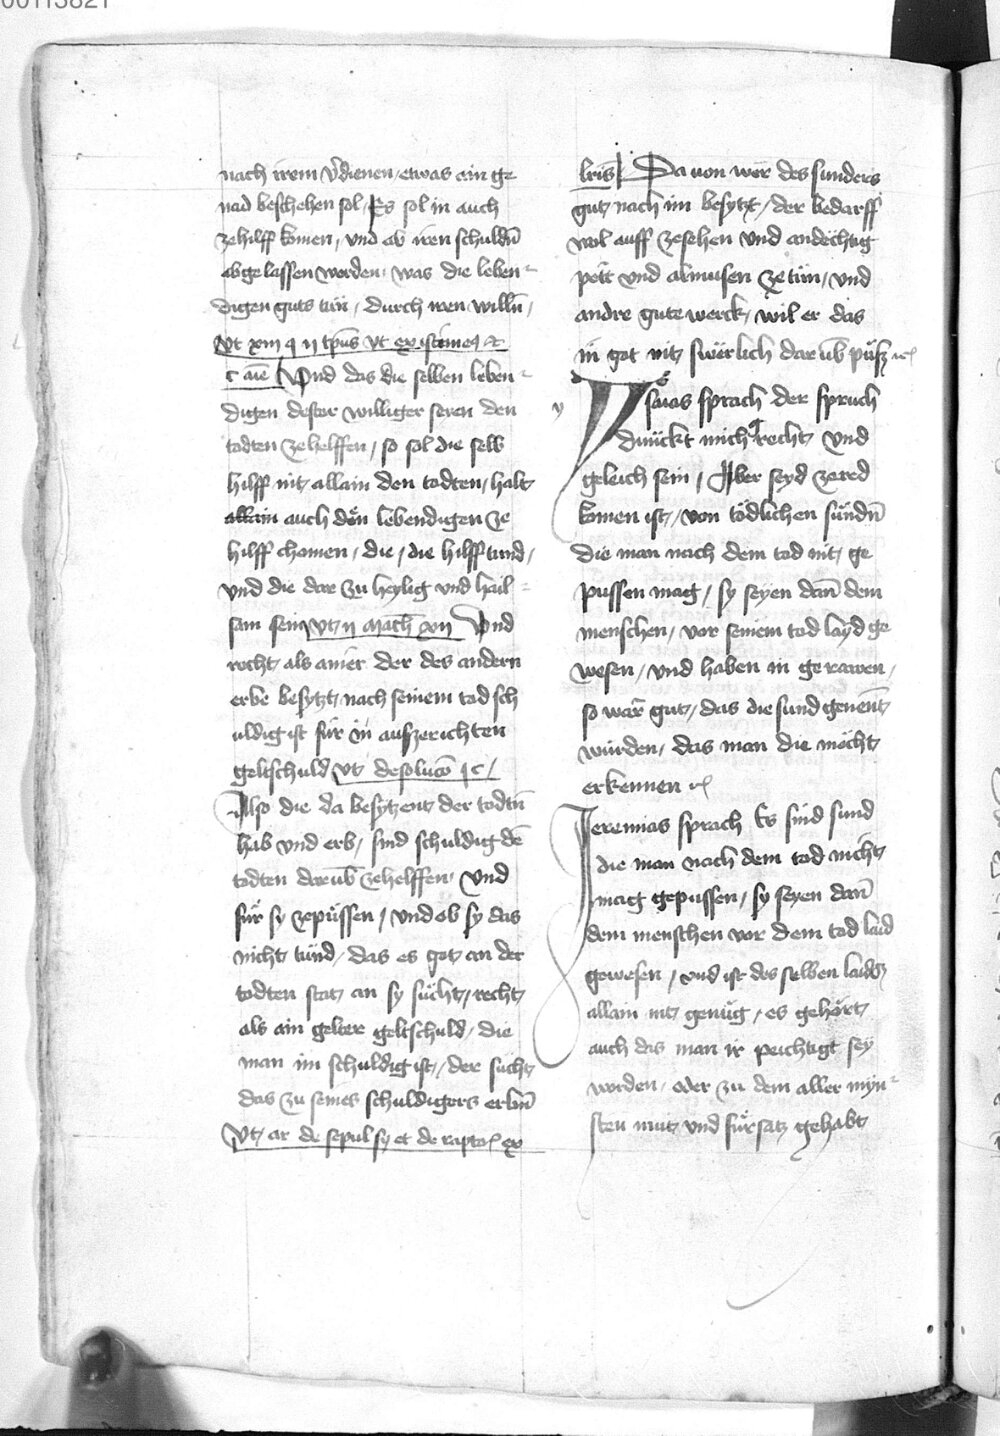 00113821
nach irem v̉dienen / etwas ain ge
nad beschehen sol / Es sol in auch
zehilff komen / und ab iren schuldn̄
abgelassen werden / was die leben-
digen guts tun / durch iren willn̄ /
Vt xiii q ii tp̄us vt
Vnd das die selben leben-
digen dester williger seren den
todten zehelffen / so sol die selb
hilff nit allain den todten / halt
allain auch den lebendigen ze
hilff chomen / die / die hilff tund /
vnd die dar zu heylig vnd hail-
sam sein vt ii Mach xii Vnd
recht als ainer der des andern
erbe besytzt / nach seinem tod sch
uldig ist für in aufzerichten
geltschuld vt de soluco͠ i c /
Also die da besytzent der todtn̄
hab vnd erb / sind schuldig den̄
todten darub̄ zehelffen / vnd
für sy zepüssen / vnd ob sy das
nicht tünd / das es got an der
todten stat an sy sücht / recht
als ain gelter geltschuld / die
man im schuldig ist / der sücht
das zu seines schuldigers erbn̄
Vt ar de sepul sy et de rapto ex
bris Da uon wer des sunders
gut nach im besytzt / der bedarff
wol auff zesehen vnd andechtig
pett vnd almusen ze tün / vnd
andre gute werck / wil er das
in got nit swerlich dar ub̄ püsz
Ysaias sprach der spruch
dunckt mich recht vnd
geleich sein / Aber seyd zered
komen ist / von tödlichen sündn̄
die man nach dem tod nit ge
pussen mag / sy seyen dan̄ dem
menschen / vor seinem tod layd ge
wesen / vnd haben in gerawen /
so wär gut / das die sund genen̄t
würden / das man die möcht
erkennen
Jeremias sprach Es sind sund
die man nach dem tod nicht
mag gepussen / sy seyen dan̄
dem menschen vor dem tod laid
gewesen / vnd ist des selben laids
allain nit genüg / es gehört
auch das man ir peichtigt sey
worden / oder zu dem aller myn-
sten mut vnd fürsatz gehabt